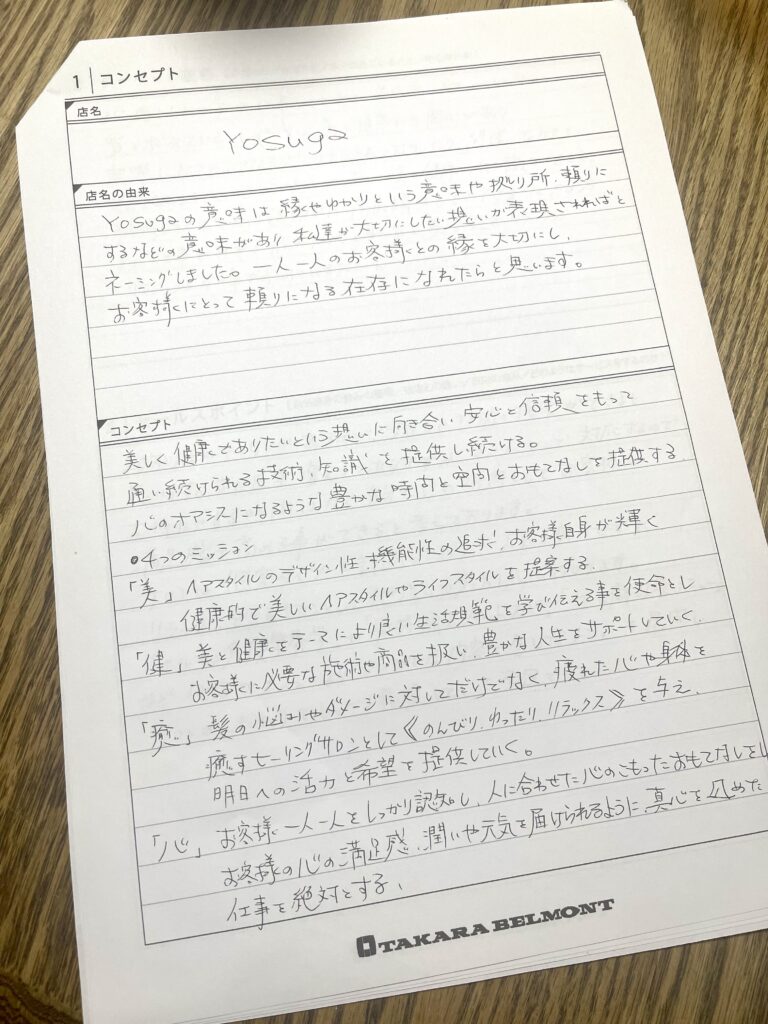 1 | コンセプト
店名
Yosuga
店名の由来
Yosugaの意味は縁やゆかりという意味や拠り所、頼りに
するなどの意味があり 私達が大切にしたい想いが表現されればと
ネーミングしました。一人一人のお客様との縁を大切にし、
お客様にとって頼りになる在存になれたらと思います。
コンセプト
美しく健康でありたいという想いに向き合い、安心と信頼をもって
通い続けられる技術、知識を提供し続ける。
心のオアシスになるような豊かな時間と空間とおもてなしを提供する
•4つのミッション
「美」ヘアスタイルのデザイン性、機能性の追求、お客様自身が輝く
健康的で美しいヘアスタイルやライフスタイルを提案する。
「健」美と健康をテーマにより良い生活規範を学び伝える事を使命とし
お客様に必要な施術や商品を扱い、豊かな人生をサポートしていく。
「癒」髪の悩みやダメージに対してだけでなく、疲れた心や身体を
癒すヒーリングサロンとして《のんびり、ゆったり、リラックス》を与え、
明日への活力と希望を提供していく。
「心」お客様一人一人をしっかり認知し、人に合わせた心のこもったおもてなしをし
お客様の心の満足感、潤いや元気を届けられるように真心を込めた
仕事を絶対とする、
TAKARA BELMONT